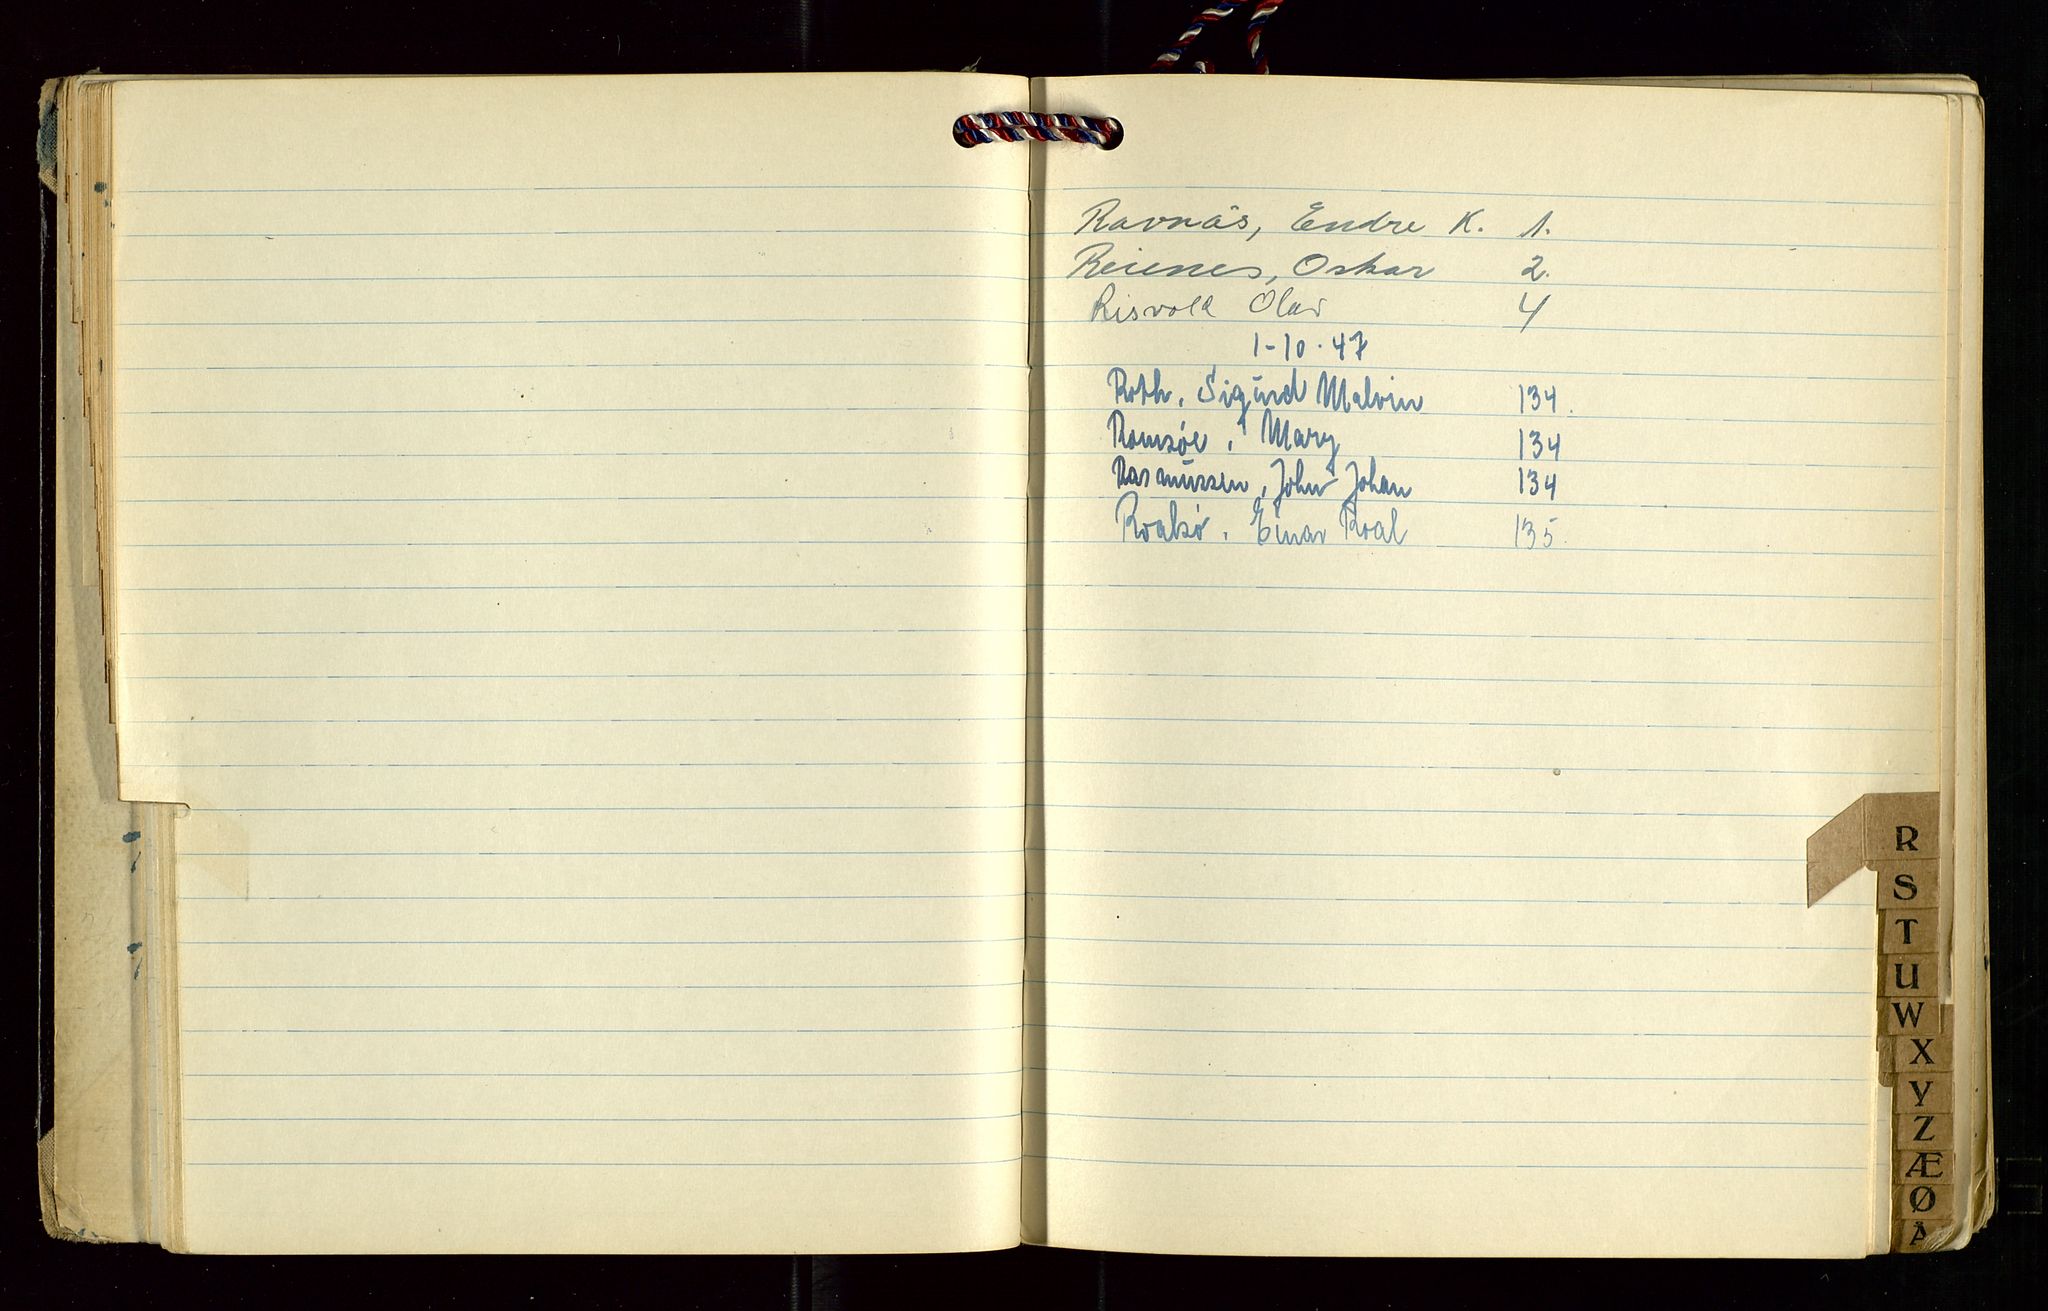 Ravnås, Endre K. 1.
Reienes, Oskar 2.
Risvold Olav 4
1-10-47
Roth, Sigurd Malvin 134.
Romsøe, Mary 134
Rasmussen, John Johan 134
Roalsø, Einar Roal 135.
R
S
T
U
W
X
Y
Z
Æ
Ø
Å